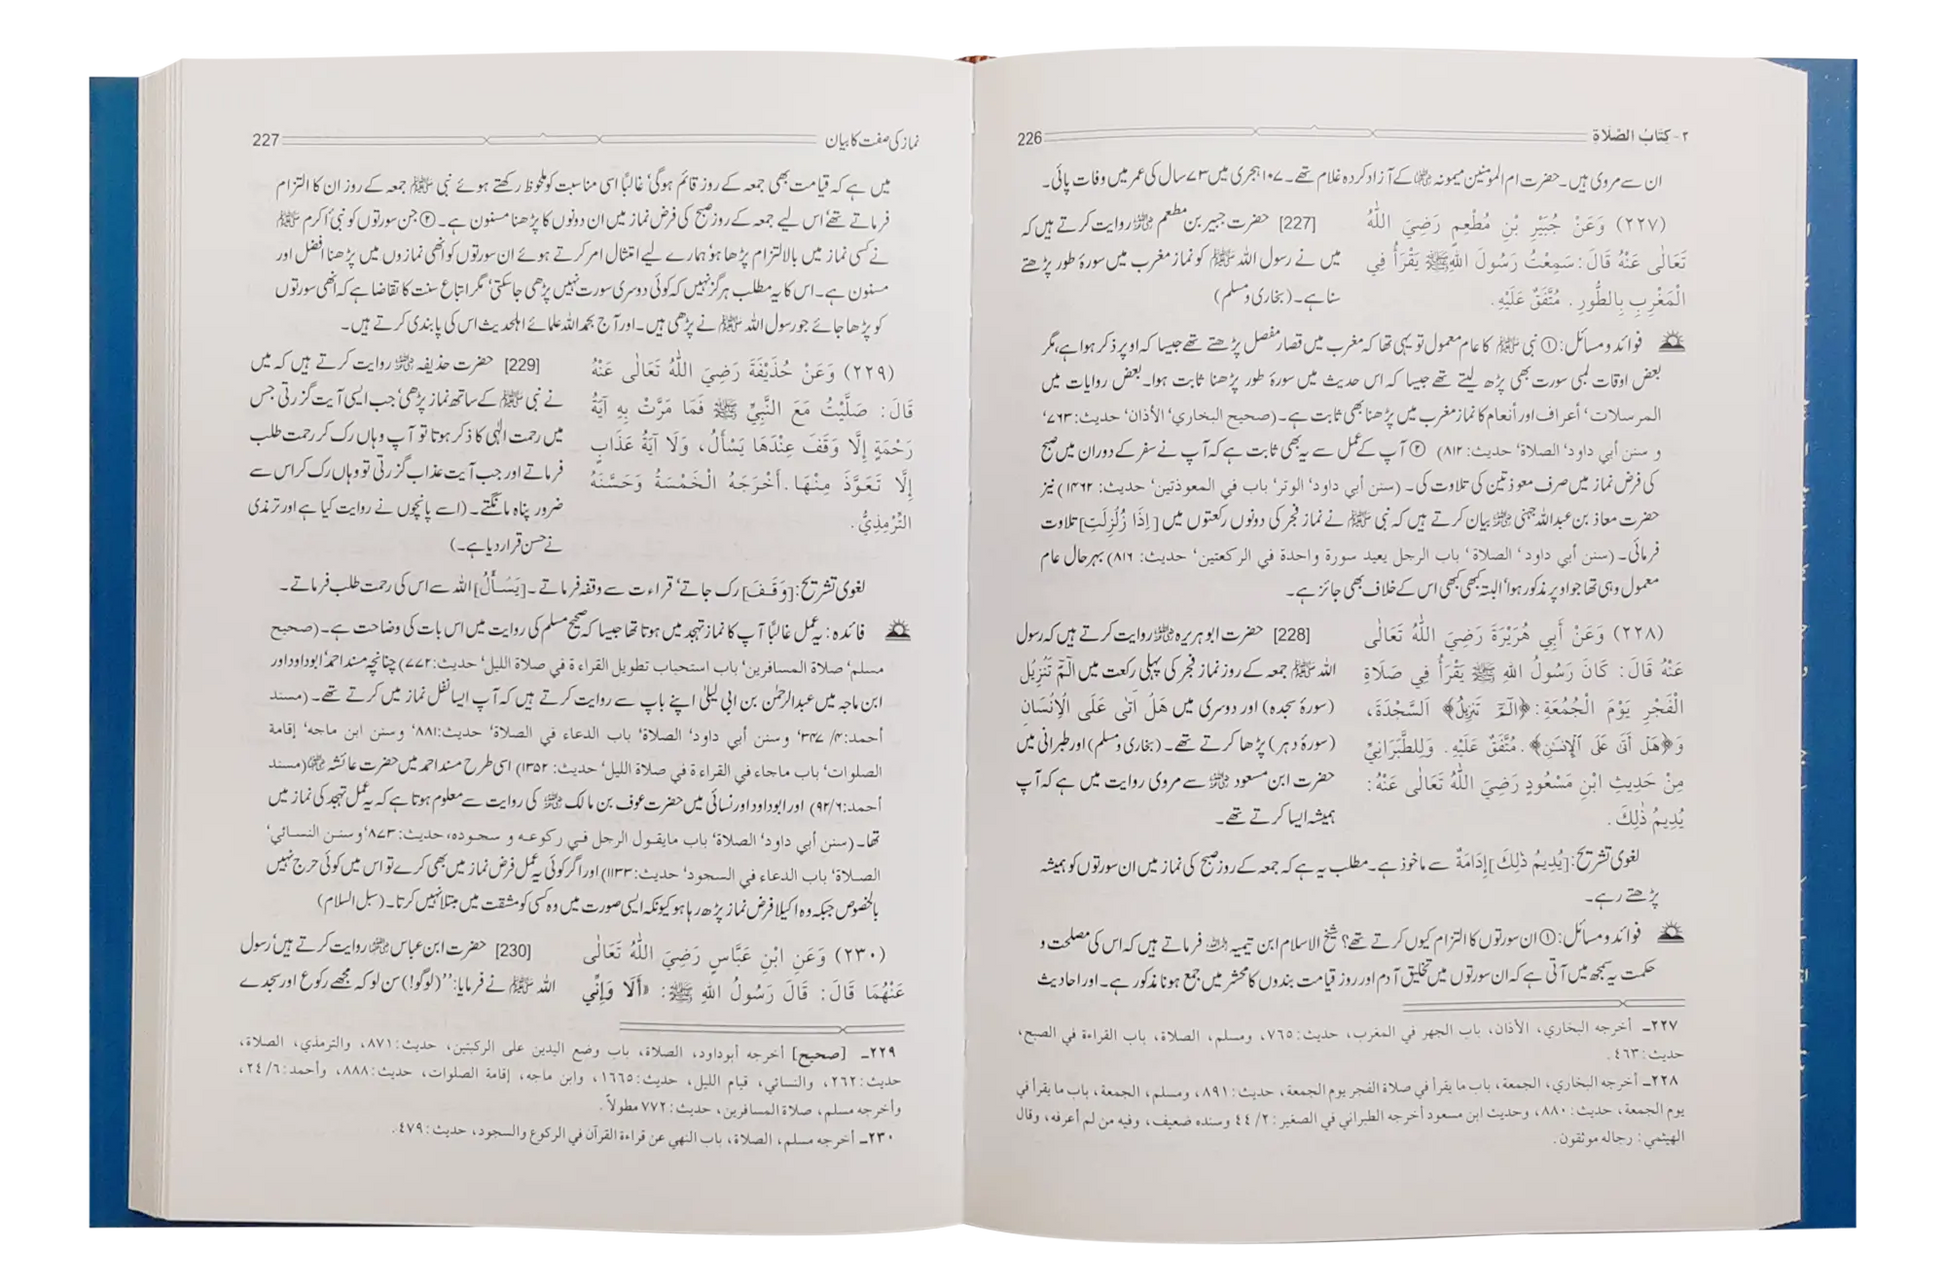 ۲- كتاب الصلاة 226
ان سے مروی ہیں۔ حضرت ام المؤمنین میمونہ ؓ کے آزاد کردہ غلام تھے۔ ۱۰۷ ہجری میں ۷۳ سال کی عمر میں وفات پائی۔
(٢٢٧) وَعَنْ جُبَيْرِ بْنِ مُطْعِمٍ رَضِيَ اللهُ
تَعَالٰى عَنْهُ قَالَ: سَمِعْتُ رَسُولَ اللهِ ﷺ يَقْرَأُ فِي
الْمَغْرِبِ بِالطُّورِ. مُتَّفَقٌ عَلَيْهِ.
[227] حضرت جبیر بن مطعم ؓ روایت کرتے ہیں کہ
میں نے رسول اللہ ﷺ کو نماز مغرب میں سورۂ طور پڑھتے
سنا ہے۔ (بخاری و مسلم)
فوائد و مسائل: ① نبی ﷺ کا عام معمول تو یہی تھا کہ مغرب میں قصار مفصل پڑھتے تھے جیسا کہ اوپر ذکر ہوا ہے، مگر
بعض اوقات لمبی سورت بھی پڑھ لیتے تھے جیسا کہ اس حدیث میں سورۂ طور پڑھنا ثابت ہوا۔ بعض روایات میں
المرسلات‘ أعراف اور أنعام کا نماز مغرب میں پڑھنا بھی ثابت ہے۔ (صحيح البخاري‘ الأذان‘ حديث: ۷۶۳‘
و سنن أبي داود‘ الصلاة‘ حديث: ۸۱۲) ② آپ کے عمل سے یہ بھی ثابت ہے کہ آپ نے سفر کے دوران میں صبح
کی فرض نماز میں صرف معوذتین کی تلاوت کی۔ (سنن أبي داود‘ الوتر‘ باب في المعوذتين‘ حديث: ۱۴۶۲) نیز
حضرت معاذ بن عبداللہ جہنی ؓ بیان کرتے ہیں کہ نبی ﷺ نے نماز فجر کی دونوں رکعتوں میں [إِذَا زُلْزِلَتِ] تلاوت
فرمائی۔ (سنن أبي داود‘ الصلاة‘ باب الرجل يعيد سورة واحدة في الركعتين‘ حديث: ۸۱۶) بہرحال عام
معمول وہی تھا جو اوپر مذکور ہوا‘ البتہ کبھی کبھی اس کے خلاف بھی جائز ہے۔
(٢٢٨) وَعَنْ أَبِي هُرَيْرَةَ رَضِيَ اللهُ تَعَالٰى
عَنْهُ قَالَ: كَانَ رَسُولُ اللهِ ﷺ يَقْرَأُ فِي صَلَاةِ
الْفَجْرِ يَوْمَ الْجُمُعَةِ: ﴿الٓمٓ تَنزِيلُ﴾ اَلسَّجْدَةَ،
وَ﴿هَلْ أَتَىٰ عَلَى ٱلْإِنسَٰنِ﴾. مُتَّفَقٌ عَلَيْهِ. وَلِلطَّبَرَانِيِّ
مِنْ حَدِيثِ ابْنِ مَسْعُودٍ رَضِيَ اللهُ تَعَالٰى عَنْهُ:
يُدِيمُ ذٰلِكَ.
[228] حضرت ابوہریرہ ؓ روایت کرتے ہیں کہ رسول
اللہ ﷺ جمعہ کے روز نماز فجر کی پہلی رکعت میں الٓمٓ تَنْزِيْلُ
(سورۂ سجدہ) اور دوسری میں هَلْ اَتٰى عَلَى الْاِنْسَانِ
(سورۂ دہر) پڑھا کرتے تھے۔ (بخاری و مسلم) اور طبرانی میں
حضرت ابن مسعود ؓ سے مروی روایت میں ہے کہ آپ
ہمیشہ ایسا کرتے تھے۔
لغوی تشریح: [يُدِيمُ ذٰلِكَ] إِدَامَةٌ سے ماخوذ ہے۔ مطلب یہ ہے کہ جمعہ کے روز صبح کی نماز میں ان سورتوں کو ہمیشہ
پڑھتے رہے۔
فوائد و مسائل: ① ان سورتوں کا التزام کیوں کرتے تھے؟ شیخ الاسلام ابن تیمیہ ؒ فرماتے ہیں کہ اس کی مصلحت و
حکمت یہ سمجھ میں آتی ہے کہ ان سورتوں میں تخلیق آدم اور روز قیامت بندوں کا محشر میں جمع ہونا مذکور ہے۔ اور احادیث
٢٢٧ـ أخرجه البخاري، الأذان، باب الجهر في المغرب، حديث: ٧٦٥، ومسلم، الصلاة، باب القراءة في الصبح،
حديث: ٤٦٣.
٢٢٨ـ أخرجه البخاري، الجمعة، باب ما يقرأ في صلاة الفجر يوم الجمعة، حديث: ٨٩١، ومسلم، الجمعة، باب ما يقرأ في
يوم الجمعة، حديث: ٨٨٠، وحديث ابن مسعود أخرجه الطبراني في الصغير: ٢/ ٤٤ وسنده ضعيف، وفيه من لم أعرفه، وقال
الهيثمي: رجاله موثقون.
نماز کی صفت کا بیان 227
میں ہے کہ قیامت بھی جمعہ کے روز قائم ہوگی‘ غالباً اسی مناسبت کو ملحوظ رکھتے ہوئے نبی ﷺ جمعہ کے روز ان کا التزام
فرماتے تھے‘ اس لیے جمعہ کے روز صبح کی فرض نماز میں ان دونوں کا پڑھنا مسنون ہے۔ ② جن سورتوں کو نبیٔ اکرم ﷺ
نے کسی نماز میں بالالتزام پڑھا ہو‘ ہمارے لیے امتثال امر کرتے ہوئے ان سورتوں کو انھی نمازوں میں پڑھنا افضل اور
مسنون ہے۔ اس کا یہ مطلب ہرگز نہیں کہ کوئی دوسری سورت نہیں پڑھی جا سکتی‘ مگر اتباع سنت کا تقاضا ہے کہ انھی سورتوں
کو پڑھا جائے جو رسول اللہ ﷺ نے پڑھی ہیں۔ اور آج بحمد اللہ علمائے اہلحدیث اس کی پابندی کرتے ہیں۔
(٢٢٩) وَعَنْ حُذَيْفَةَ رَضِيَ اللهُ تَعَالٰى عَنْهُ
قَالَ: صَلَّيْتُ مَعَ النَّبِيِّ ﷺ فَمَا مَرَّتْ بِهِ آيَةُ
رَحْمَةٍ إِلَّا وَقَفَ عِنْدَهَا يَسْأَلُ، وَلَا آيَةُ عَذَابٍ
إِلَّا تَعَوَّذَ مِنْهَا. أَخْرَجَهُ الْخَمْسَةُ وَحَسَّنَهُ
التِّرْمِذِيُّ.
[229] حضرت حذیفہ ؓ روایت کرتے ہیں کہ میں
نے نبی ﷺ کے ساتھ نماز پڑھی‘ جب ایسی آیت گزرتی جس
میں رحمت الٰہی کا ذکر ہوتا تو آپ وہاں رک کر رحمت طلب
فرماتے اور جب آیت عذاب گزرتی تو وہاں رک کر اس سے
ضرور پناہ مانگتے۔ (اسے پانچوں نے روایت کیا ہے اور ترمذی
نے حسن قرار دیا ہے۔)
لغوی تشریح: [وَقَفَ] رک جاتے‘ قراءت سے وقفہ فرماتے۔ [يَسْأَلُ] اللہ سے اس کی رحمت طلب فرماتے۔
فائدہ: یہ عمل غالباً آپ کا نماز تہجد میں ہوتا تھا جیسا کہ صحیح مسلم کی روایت میں اس بات کی وضاحت ہے۔ (صحيح
مسلم‘ صلاة المسافرين‘ باب استحباب تطويل القراءة في صلاة الليل‘ حديث: ۷۷۲) چنانچہ مسند احمد‘ ابوداود اور
ابن ماجہ میں عبدالرحمٰن بن ابی لیلیٰ اپنے باپ سے روایت کرتے ہیں کہ آپ ایسا نفل نماز میں کرتے تھے۔ (مسند
أحمد: ۴/ ۳۴۷‘ وسنن أبي داود‘ الصلاة‘ باب الدعاء في الصلاة‘ حديث: ۸۸۱‘ وسنن ابن ماجه‘ إقامة
الصلوات‘ باب ماجاء في القراءة في صلاة الليل‘ حديث: ۱۳۵۲) اسی طرح مسند احمد میں حضرت عائشہ ؓ (مسند
أحمد: ۶/۹۲) اور ابوداود اور نسائی میں حضرت عوف بن مالک ؓ کی روایت سے معلوم ہوتا ہے کہ یہ عمل تہجد کی نماز میں
تھا۔ (سنن أبي داود‘ الصلاة‘ باب مايقول الرجل في ركوعه و سجوده، حديث: ۸۷۳‘ وسنن النسائي‘
الصلاة‘ باب الدعاء في السجود‘ حديث: ۱۱۳۳) اور اگر کوئی یہ عمل فرض نماز میں بھی کرے تو اس میں کوئی حرج نہیں
بالخصوص جبکہ وہ اکیلا فرض نماز پڑھ رہا ہو کیونکہ ایسی صورت میں وہ کسی کو مشقت میں مبتلا نہیں کرتا۔ (سبل السلام)
(٢٣٠) وَعَنِ ابْنِ عَبَّاسٍ رَضِيَ اللهُ تَعَالٰى
عَنْهُمَا قَالَ: قَالَ رَسُولُ اللهِ ﷺ: «أَلَا وَإِنِّي
[230] حضرت ابن عباس ؓ روایت کرتے ہیں‘ رسول
اللہ ﷺ نے فرمایا: ’’(لوگو!) سن لو کہ مجھے رکوع اور سجدے
٢٢٩ـ [صحيح] أخرجه أبوداود، الصلاة، باب وضع اليدين على الركبتين، حديث: ٨٧١، والترمذي، الصلاة،
حديث: ٢٦٢، والنسائي، قيام الليل، حديث: ١٦٦٥، وابن ماجه، إقامة الصلوات، حديث: ٨٨٨، وأحمد: ٦/ ٢٤،
وأخرجه مسلم، صلاة المسافرين، حديث: ٧٧٢ مطولاً.
٢٣٠ـ أخرجه مسلم، الصلاة، باب النهي عن قراءة القرآن في الركوع والسجود، حديث: ٤٧٩.